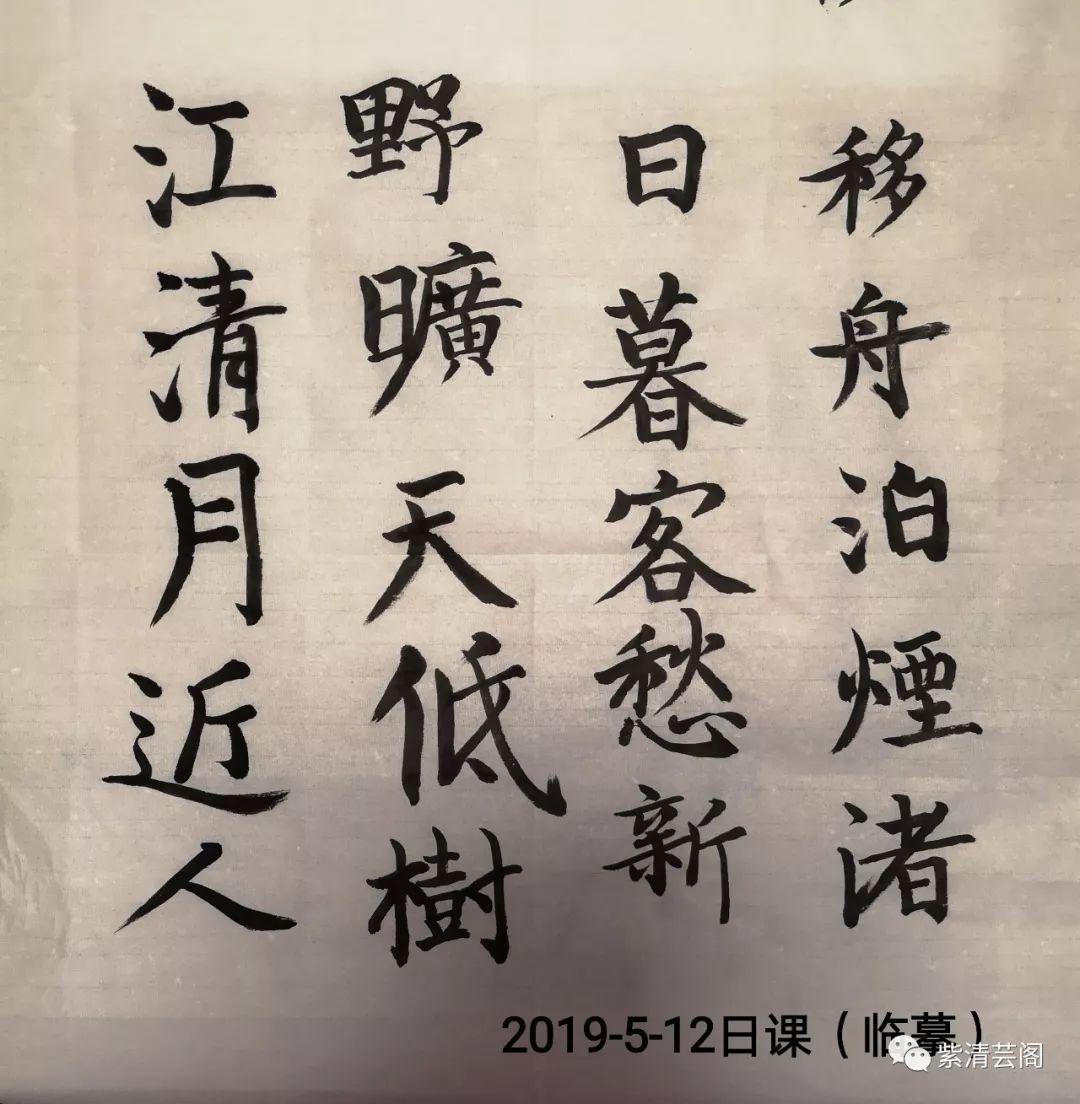 移舟泊煙渚
日暮客愁新
野曠天低樹
江清月近人
2019-5-12日课（临摹）
紫清芸阁